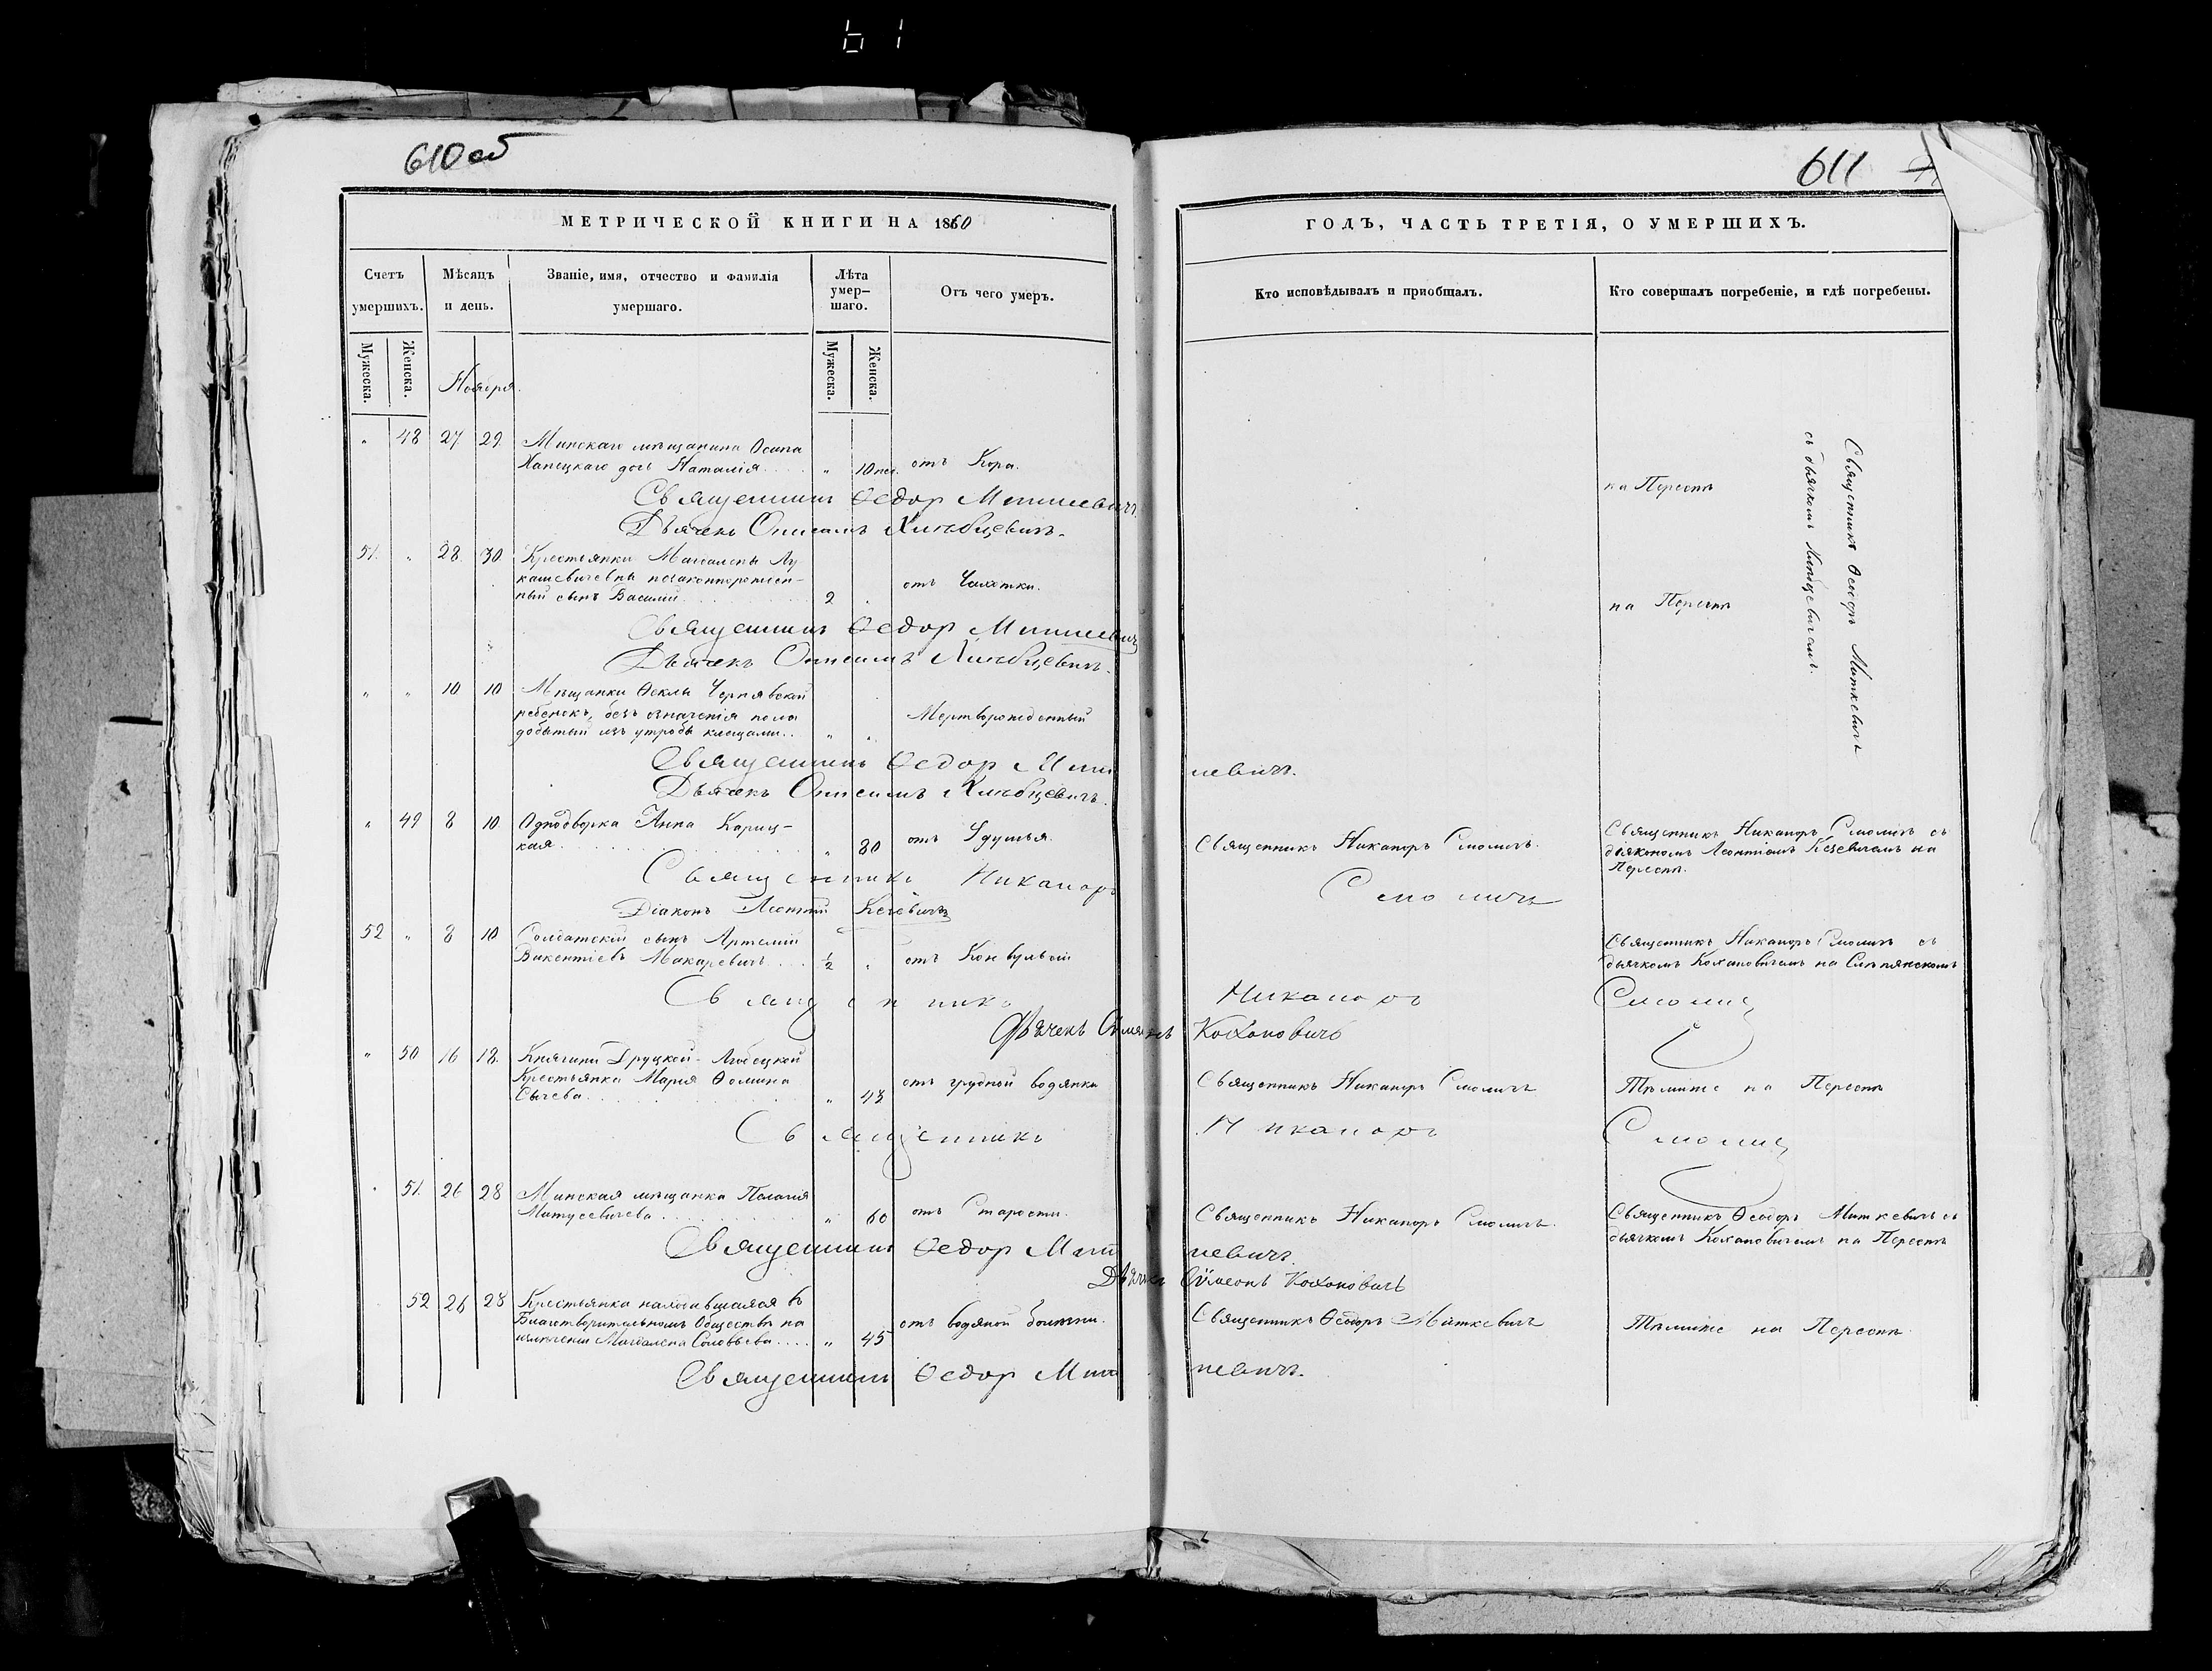 61
610 об
611
МЕТРИЧЕСКОЙ КНИГИ НА 1860
ГОДЪ, ЧАСТЬ ТРЕТІЯ, О УМЕРШИХЪ.
Счетъ умершихъ.
Мѣсяцъ и день.
Званіе, имя, отчество и фамилія умершаго.
Лѣта умер-
шаго.
Отъ чего умеръ.
Кто исповѣдывалъ и приобщалъ.
Кто совершалъ погребеніе, и гдѣ погребены.
Мужеска.
Женска.
Мужеска.
Женска.
Ноября.
" 48 27 29 Минскаго мѣщанина Осипа
Ханецкаго дочь Наталія " 10 мес. отъ Кора.
на Переспѣ
Священникъ Ѳеодоръ Миткевичъ
съ дьячкомъ
Священникъ Ѳедор Миткевичъ
Дьячекъ Онисимъ
51 " 28 30 Крестьянки Магдалены Лу-
кашевичевны незаконнорожден-
ный сынъ Василій 2 " отъ Чахотки.
на Переспѣ
Священникъ Ѳедор Миткевичъ
Дьячекъ Онисимъ
" " 10 10 Мѣщанки Ѳеклы Чернявской
ребенокъ, безъ означенія пола
добытый изъ утробы клещами " " Мертворожденный
Священникъ Ѳедор Миткевичъ.
Дьячекъ Онисимъ
" 49 8 10 Однодворка Анна Кориц-
кая " 80 отъ Удушья.
Священникъ Никаноръ Смоличъ.
Священникъ Никаноръ Смоличъ съ
діакономъ Леонтіемъ Кезевичемъ на
Переспѣ.
Священникъ Никаноръ Смоличъ
Діаконъ Леонтій Кезевичъ
52 " 8 10 Солдатскій сынъ Артемій
Викентіевъ Макаревичъ 1/2 " отъ Конвульсій
Священникъ Никаноръ Смоличъ съ
дьячкомъ Кохановичемъ на Слѣпянскомъ
Священникъ Никаноръ Смоличъ
Дьячекъ Кохановичъ
" 50 16 18 Княгини Друцкой-Любецкой
Крестьянка Марія Ѳомина
Сычева " 43 отъ грудной водянки
Священникъ Никаноръ Смоличъ
Тѣмже на Переспѣ
Священникъ Никаноръ Смоличъ
51 26 28 Минская мѣщанка Пелагія
Матусевичева " 60 отъ Старости.
Священникъ Никаноръ Смоличъ.
Священникъ Ѳеодоръ Миткевичъ съ
дьячкомъ Кохановичемъ на Переспѣ
Священникъ Ѳедор Миткевичъ.
Дьячекъ Сѵмеонъ Кохановичъ
52 26 28 Крестьянка находившаяся въ
Благотворительномъ Обществѣ на
излеченіи Магдалена Соловьева " 45 отъ водяной болѣзни.
Священникъ Ѳеодоръ Миткевичъ
Тѣмже на Переспѣ
Священникъ Ѳедор Миткевичъ.